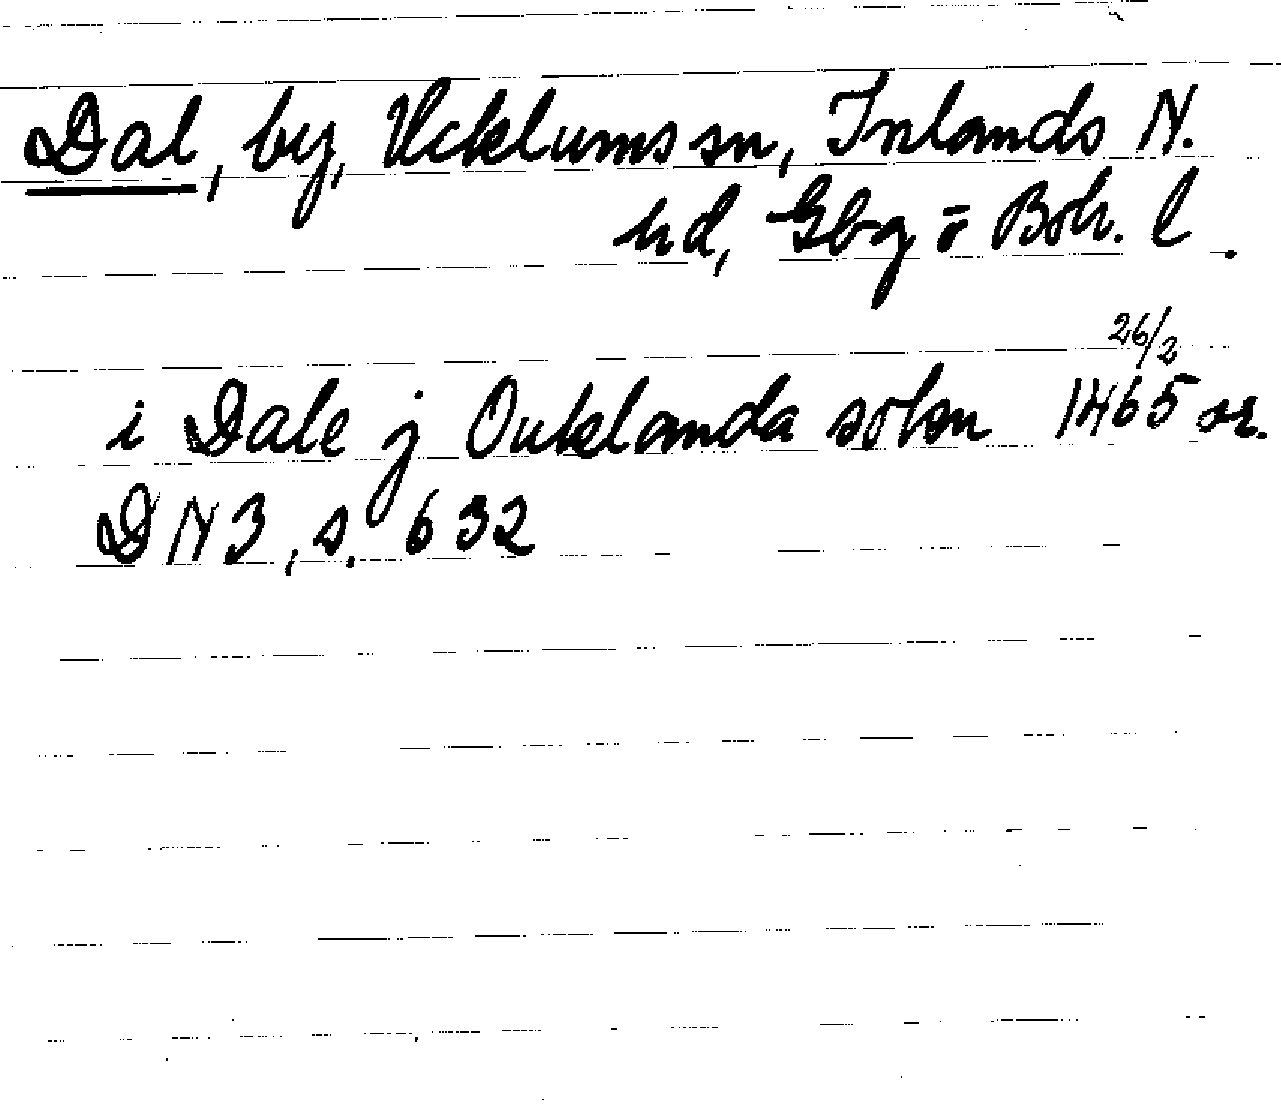 Dal, by, Ucklums sn, Inlands N.
hd, Gbg o Boh. l.
26/2
i Dale j Ouklanda sokn 1465 or.
DN 3, s. 632